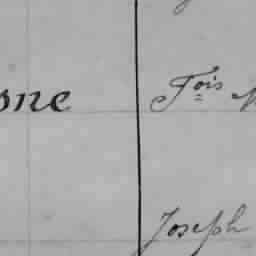 one Fois
Joseph